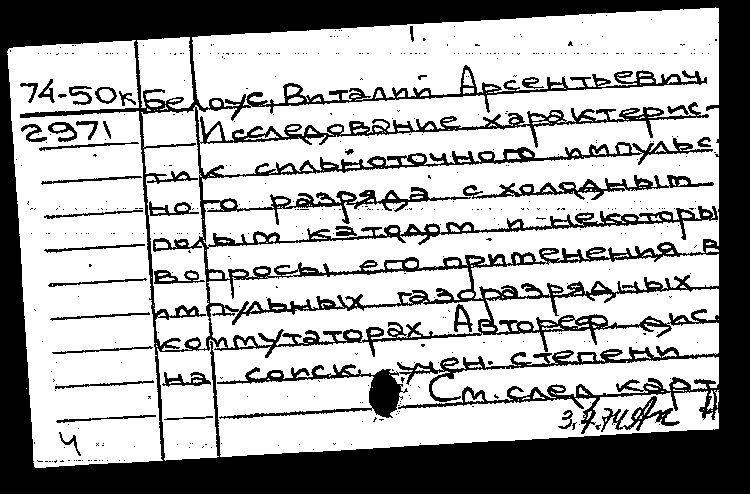 1.
74-50к Белоус, Виталий Арсентьевич.
2971 Исследование характерис-
тик сильноточного импульс
ного разряда с холодным
полым катодом и некоторы
вопросы его применения в
импульных газоразрядных
коммутаторах. Автореф. дис.
на соиск. учен. степени
См. след. карт
3.7.74
Ч